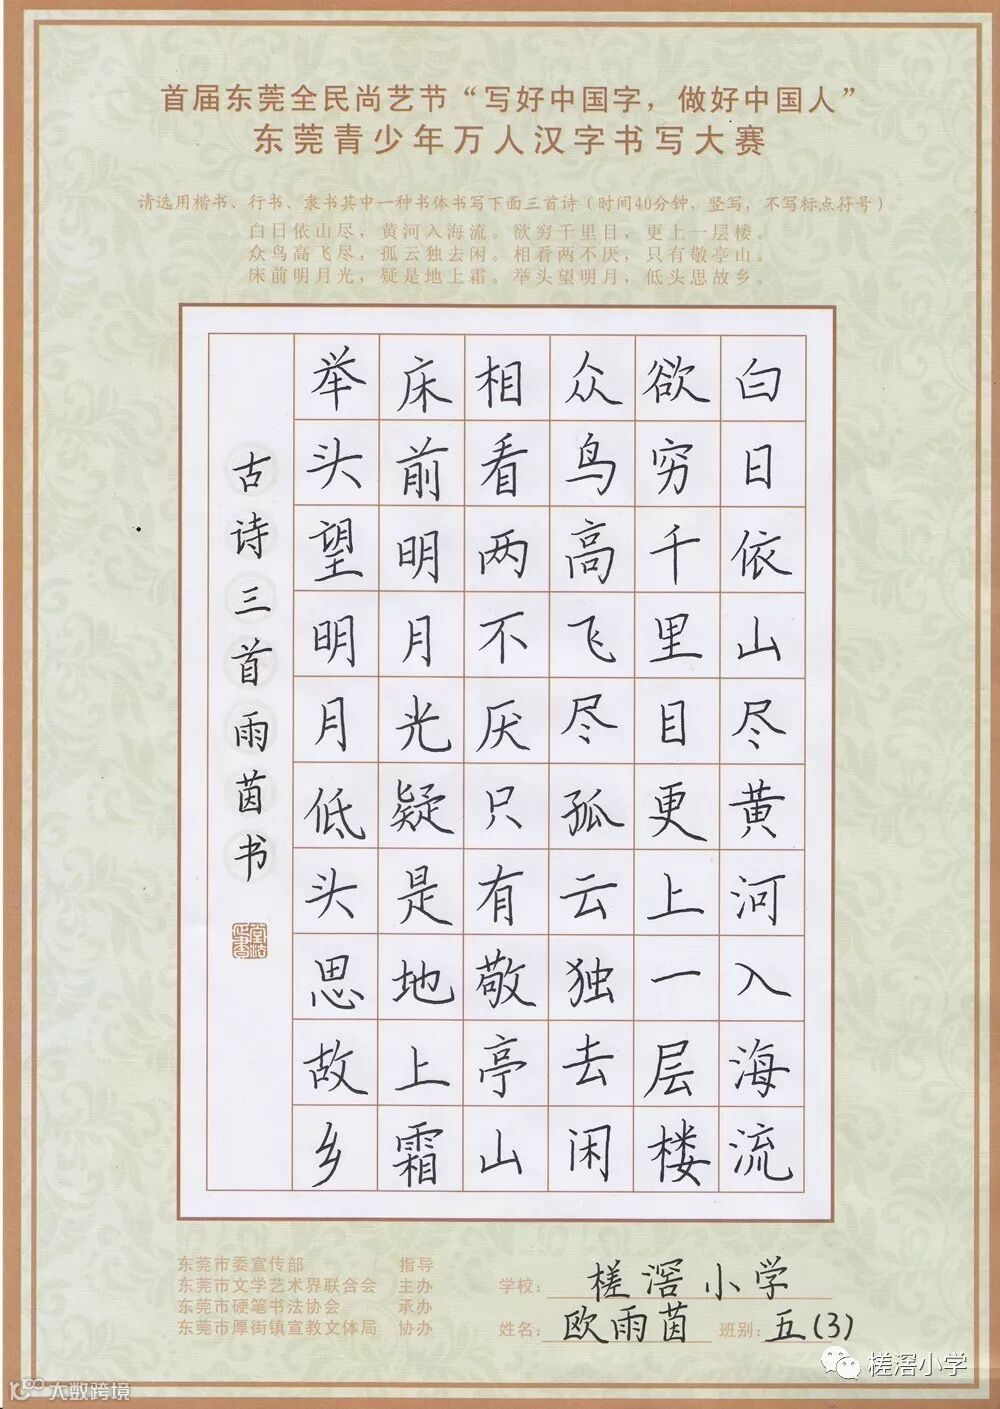 首届东莞全民尚艺节“写好中国字，做好中国人”
东莞青少年万人汉字书写大赛
请选用楷书、行书、隶书其中一种书体书写下面三首诗（时间40分钟，竖写，不写标点符号）
白日依山尽，黄河入海流。欲穷千里目，更上一层楼。
众鸟高飞尽，孤云独去闲。相看两不厌，只有敬亭山。
床前明月光，疑是地上霜。举头望明月，低头思故乡。
白日依山尽黄河入海流
欲穷千里目更上一层楼
众鸟高飞尽孤云独去闲
相看两不厌只有敬亭山
床前明月光疑是地上霜
举头望明月低头思故乡
古诗三首雨茵书
东莞市委宣传部 指导
东莞市文学艺术界联合会 主办
东莞市硬笔书法协会 承办
东莞市厚街镇宣教文体局 协办
学校：槎滘小学
姓名：欧雨茵 班别：五(3)
槎滘小学
大数跨境